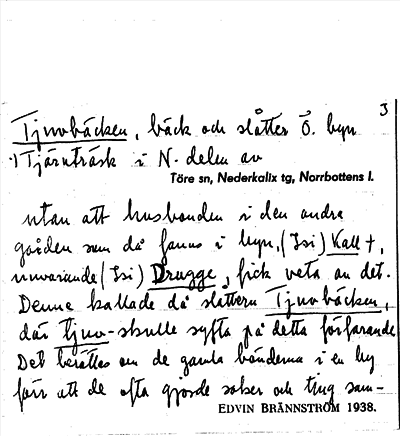 3
Tjuvbäcken, bäck och slåtter Ö. byn
Tjärnträsk i N. delen av
Töre sn, Nederkalix tg, Norrbottens l.
utan att husbonden i den andra
gården som då fanns i byn, (Isi) Kall +,
nuvarande (Isi) Drugge, fick veta om det.
Denne kallade då slåttern Tjuvbäcken,
där tjuv-skulle syfta på detta förfarande
Det berättas om de gamla bönderna i en by
förr att de ofta gjorde saker och ting sam-
EDVIN BRÄNNSTRÖM 1938.